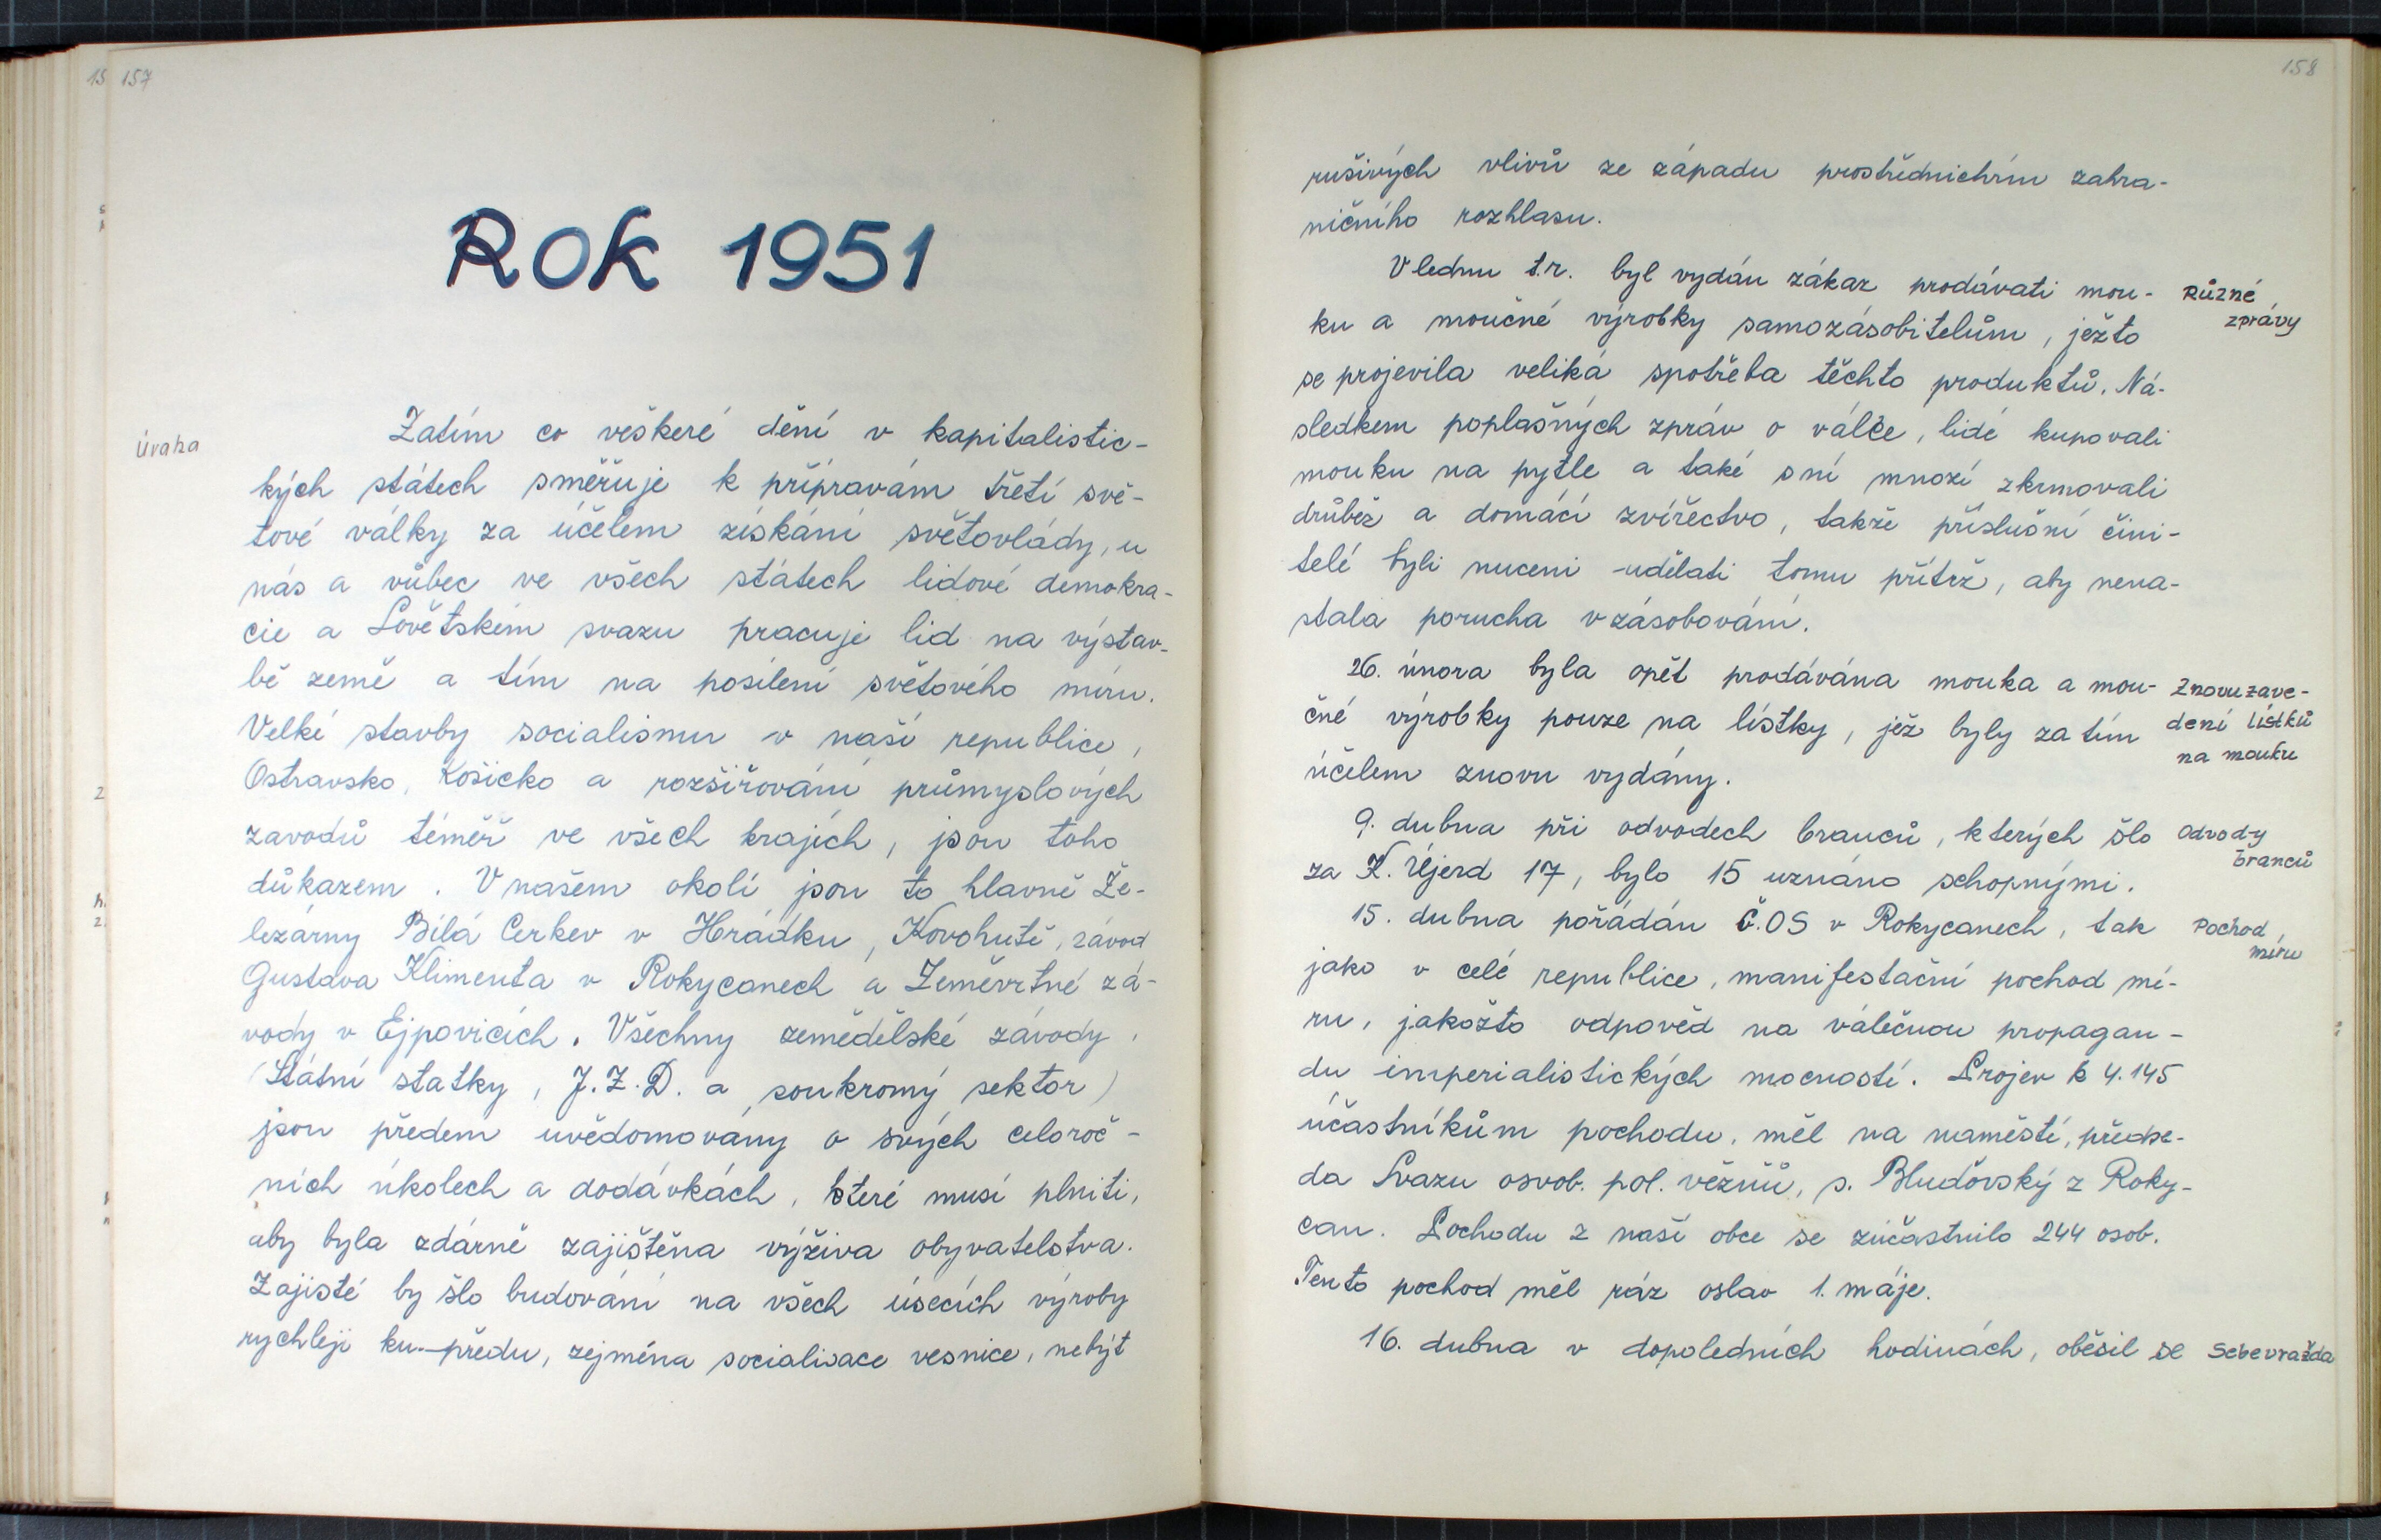 157
Rok 1951
Úvaha
Zatím co veškeré dění v kapitalistic-
kých státech směřuje k přípravám třetí svě-
tové války za účelem získání světovlády, u
nás a vůbec ve všech státech lidové demokra-
cie a Sovětském svazu pracuje lid na výstav-
bě země a tím na posílení světového míru.
Velké stavby socialismu v naší republice,
Ostravsko, Košicko a rozšiřování průmyslových
zavodů téměř ve všech krajích, jsou toho
důkazem. V našem okolí jsou to hlavně Že-
lezárny Bílá Cerkev v Hrádku, Kovohutě, závod
Gustava Klimenta v Rokycanech a Zeměvrtné zá-
vody v Ejpovicích. Všechny zemědělské závody,
(Státní statky, J.Z.D. a soukromý sektor)
jsou předem uvědomovány o svých celoroč-
ních úkolech a dodávkách, které musí plniti,
aby byla zdárně zajištěna výživa obyvatelstva.
Zajisté by šlo budování na všech úsecích výroby
rychleji ku-předu, zejména socialisace vesnice, nebýt
158
rušivých vlivů ze západu prostřednictvím zahra-
ničního rozhlasu.
V lednu t.r. byl vydán zákaz prodávati mou-
Různé
zprávy
ku a moučné výrobky samozásobitelům, ježto
se projevila veliká spotřeba těchto produktů. Ná-
sledkem poplašných zpráv o válce, lidé kupovali
mouku na pytle a také s ní mnozí zkrmovali
drůbež a domácí zvířectvo, takže příslušní čini-
telé byli nuceni udělati tomu přítrž, aby nena-
stala porucha v zásobování.
26. února byla opět prodávána mouka a mou-
Znovuzave-
dení lístků
na mouku
čné výrobky pouze na lístky, jež byly za tím
účelem znovu vydány.
9. dubna při odvodech branců, kterých šlo
Odvody
branců
za K. Újezd 17, bylo 15 uznáno schopnými.
15. dubna pořádán Č.OS v Rokycanech, tak
Pochod
míru
jako v celé republice, manifestační pochod mí-
ru, jakožto odpověd na válečnou propagan-
du imperialistických mocností. Projev k 4.145
účastníkům pochodu, měl na naměstí, předse-
da Svazu osvob. pol. vězňů, s. Bludovský z Roky-
can. Pochodu z naší obce se zúčastnilo 244 osob.
Tento pochod měl ráz oslav 1. máje.
16. dubna v dopoledních hodinách, oběsil se
Sebevražda